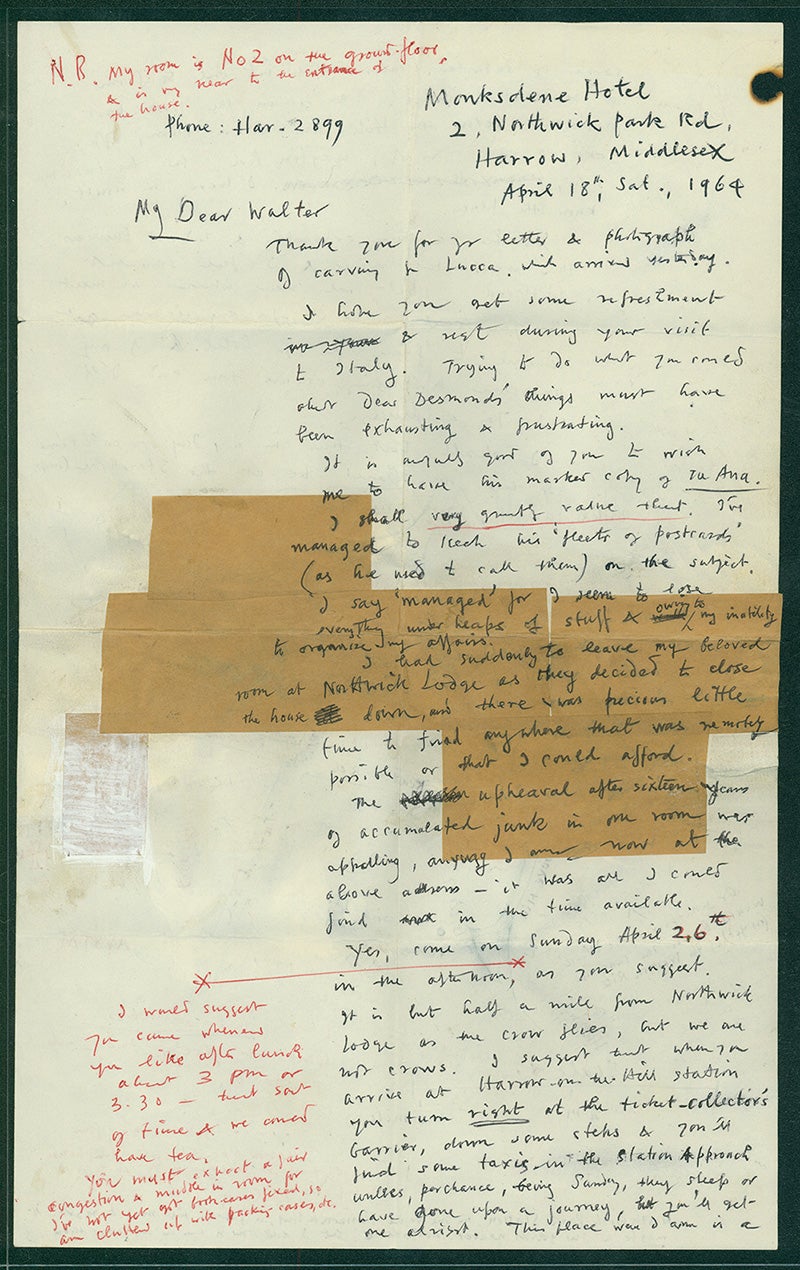 N.B. My room is No 2 on the ground-floor,
& is v. near to the entrance of
the house.
Phone: Har - 2899
Monksdene Hotel
2, Northwick Park Rd,
Harrow, Middlesex
April 18th, Sat., 1964
My Dear Walter
Thank you for yr letter & photograph
of carving in Lucca, which arrived yesterday.
I hope you get some refreshment
& rest during your visit
to Italy. Trying to do what you could
about Dear Desmond's things must have
been exhausting & frustrating.
It is awfully good of you to wish
me to have his marked copy of In Ana.
I shall very greatly value that. I've
managed to keep his 'fleets of postcards'
(as he used to call them) on the subject.
I say 'managed' for I seem to lose
everything under heaps of stuff & owing to my inability
to organize my affairs.
I had suddenly to leave my beloved
room at Northwick Lodge as they decided to close
the house down, and there was precious little
time to find anywhere that was remotely
possible or that I could afford.
The upheaval after sixteen years
of accumulated junk in one room was
appalling, anyway I am now at the
above address – it was all I could
find in the time available.
Yes, come on Sunday April 26th.
in the afternoon, as you suggest.
It is but half a mile from Northwick
Lodge as the crow flies, but we are
not crows. I suggest that when you
arrive at Harrow-on-the-Hill station
you turn right at the ticket-collector's
barrier, down some steps & you'll
find some taxis in the station Approach
unless, perchance, being Sunday, they sleep or
have gone upon a journey, but you'll get
one alright. This place where I am is a
I would suggest
you came whenever
you like after lunch
about 3 pm or
3.30 – that sort
of time & we could
have tea.
You must expect a fair
congestion & muddle in room for
I've not yet got book-cases fixed, so
am cluttered up with packing cases, etc.